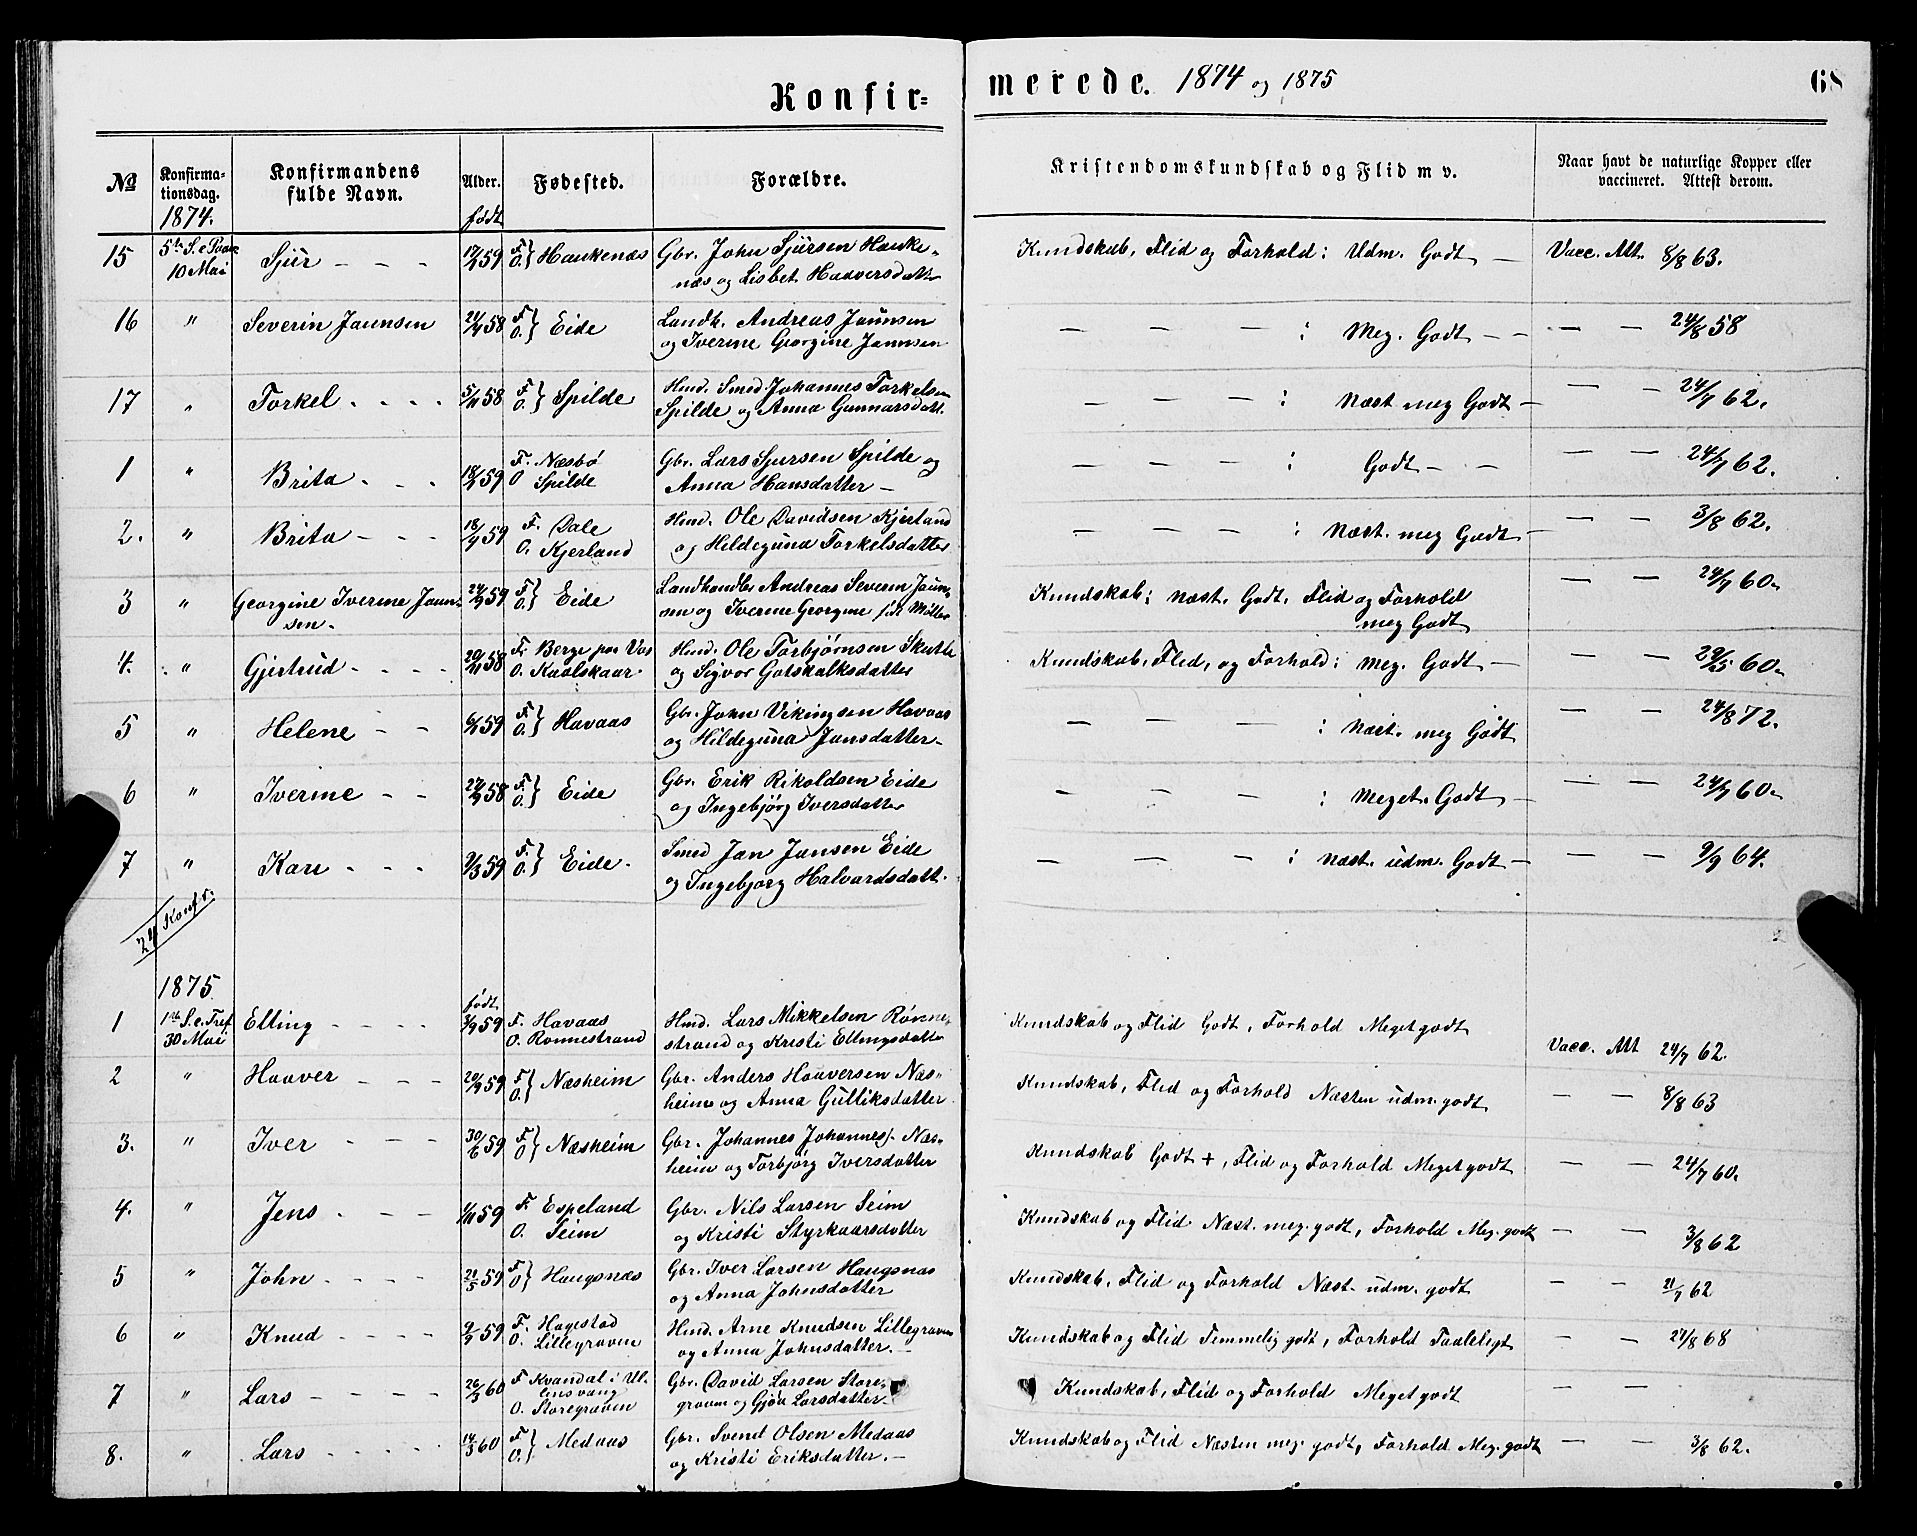 Konfir=
merede. 1874 og 1875
68
No Konfirma-tionsdag. Konfirmandens fulde Navn. Alder. Fødested. Forældre. Kristendomskundskab og Flid m v. Naar havt de naturlige Kopper eller vaccineret. Attest derom.
1874. født
15 5te S. e Paaske Sjur - - - 59 F. } Haukenæs Gbr. John Sjursen Hauke- Kundskab, Flid og Forhold: Udm. Godt - Vacc. Att. 8/8 63.
10 Mai O. næs og Lisbet Haaversdatter
16 " Severin Jaunsen 58 F. } Eide Landh. Andreas Jaunsen - - - - : Meg. Godt - - - - 24/8 58
O. og Iverine Georgine Jaunsen
17 " Torkel . - - - 5/11 58 F. } Spilde Hmd. Smed Johannes Torkelsen - - - : Næst meg Godt - - - 24/7 62.
O. Spilde og Anna Gunnarsdatt.
1 " Brita . - - 59 F. Næsbø Gbr. Lars Sjursen Spilde og - - - : Godt - - - - 24/7 62.
O Spilde Anna Hansdatter -
2. " Brita - - - 59 F. Dale Hmd. Ole Davidsen Kjerland - - - : Næst. meg Godt - - - 3/8 62.
O. Kjerland og Hildeguna Torkelsdatter
3 " Georgine Iverine Jaun- 59 F. } Eide Landhandler Andreas Severin Jaun- Kundskab: Næst. Godt. Flid og Forhold - - 24/7 60.
sen. O. sen og Iverine Georgine født Møller meg Godt
4. " Gjertrud - - - - 58 F. Berge paa Vos Hmd. Ole Torbjørnsen Skutle Kundskab, Flid, og Forhold: Meg. Godt - - - 29/5 60.
O. og Sigvor Gotskalksdatter
5 " Helene - - 59 F. } Havaas Gbr. John Vikingsen Havaas - - - : Næst. meg Godt - - 24/8 72.
O. og Hildeguna Jansdatter-
6 " Iverine - - 58 F. } Eide Gbr. Erik Rikoldsen Eide - - - : Meget Godt - - - 24/7 60.
O. og Ingebjørg Iversdatter
7 " Kari - - - 9/3 59 F. } Eide. Smed Jan Jansen Eide - - - : Næst. udm. Godt - - - 9/9 64.
O. og Ingebjørg Halvardsdatt.
24 Konfr.
1875. født
1 1ste S. e. Tref. Elling - - - - 3/9 59 F. Havaas Hmd. Lars Mikkelsen Rønne- Kundskab og Flid Godt, Forhold Meget godt
30 Mai O. Rønnestrand strand og Kristi Ellingsdatter Vacc. Att 24/7 62.
2 " Haaver - - - 59 F } Næsheim Gbr. Anders Haaversen Næs- Kundskab, Flid og Forhold Næsten udm. godt - - 8/8 63
O. heim og Anna Gulliksdatter
3. " Iver - - - 30/6 59 F } Næsheim Gbr. Johannes Johannes. Næs- Kundskab Godt +, Flid og Forhold Meget godt - - 24/7 60.
O heim og Torbjørg Iversdatter
4. " Jens . - - - 59 F. Espeland Gbr. Nils Larsen Seim Kundskab og Flid Næst. meg. godt, Forhold Meg. godt - - 3/8 62
O. Seim og Kristi Styrkaarsdatter
5 " John - - - - 21/5 59 F } Haugsnæs Gbr. Iver Larsen Haugsnæs Kundskab, Flid og Forhold Næst. udm. godt - - 21/7 62
O og Anna Johnsdatter
6 " Knud - - - - 59 F. Hagestad Hmd. Arne Knudsen Lillegraven Kundskab og Flid Temmelig godt, Forhold Taaleligt - - 27/8 68
O. Lillegraven og Anna Johnsdatter. -
7 " Lars - - - - 26/3 60 F Kvandal i Ul- Gbr. David Larsen Store- Kundskab, Flid og Forhold Meget godt - -
lensvang graven og Gjøa Larsdatter
O. Storegraven
8. " Lars - - - - - 14/3 60 F } Medaas Gbr. Svend Olsen Medaas Kundskab og Flid Næsten meg. godt, Forhold Meg. godt - - 3/8 62.
O. og Kristi Eriksdatter. -